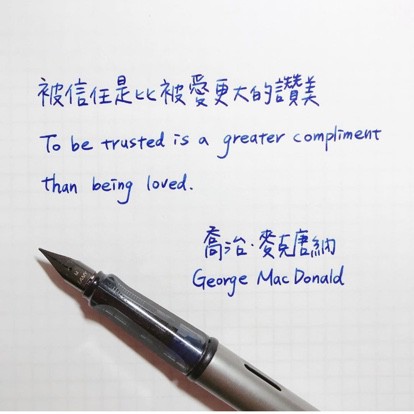 被信任是比被愛更大的讚美
To be trusted is a greater compliment
than being loved.
喬治·麥克唐納
George MacDonald